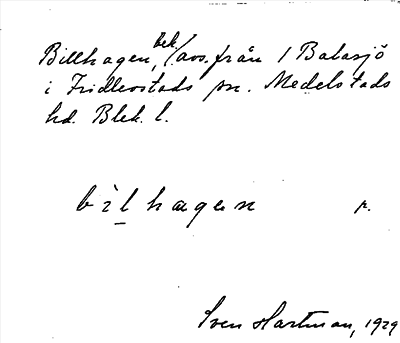 Billhagen, bek./avs. från 1 Balasjö
i Fridlevstads sn. Medelstads
hd. Blek. l.
bìlhagen p.
Sven Hartman, 1929